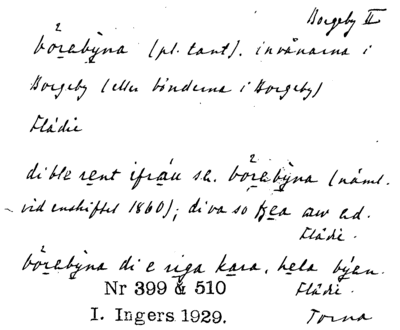 Borgeby II
börebỳna (pl. tant). invånarna i
Borgeby (eller bönderna i Borgeby)
Flädie
di ble rent ifråu se. börebỳna (näml.
vid enskiftet 1860); di va so
aw ad.
Flädie.
börebỳna di e riga kara, hela býen.
Nr 399 & 510 Flädie.
I. Ingers 1929. Torna